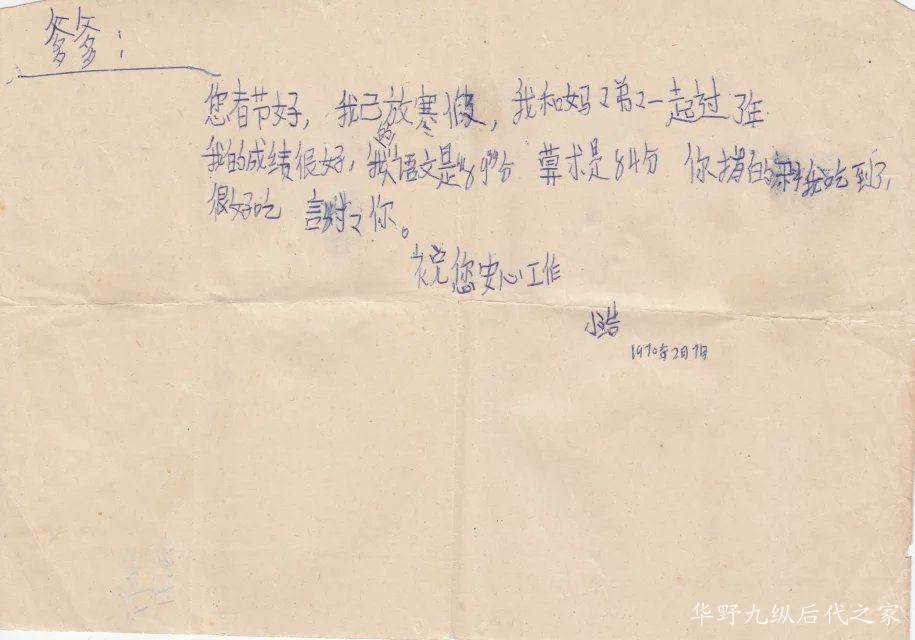 爹爹：
您春节好，我已放寒假，我和妈々弟々一起过了年
我的成绩很好，我的语文是89分 算术是84分 你捎的我吃到了，
很好吃 謝々你。
祝您安心工作
小浩
1970年2月7日
华野九纵后代之家